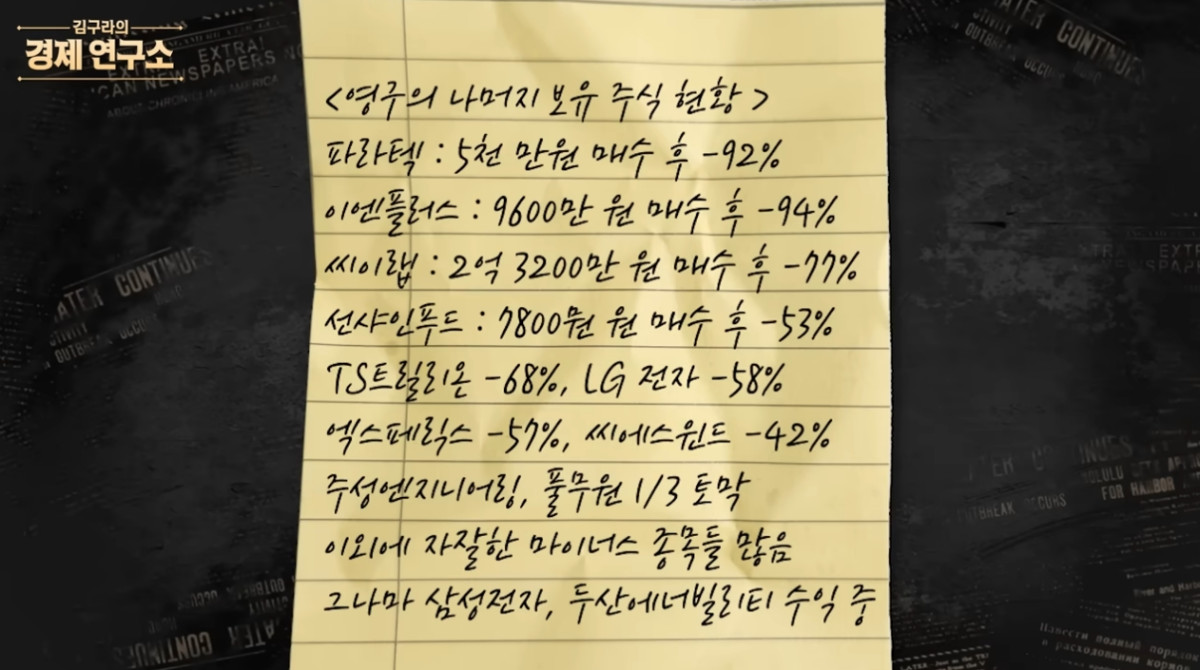 김구라의
경제 연구소
<영구의 나머지 보유 주식 현황>
파라텍 : 5천 만원 매수 후 -92%
이엔플러스 : 9600만 원 매수 후 -94%
씨이랩 : 2억 3200만 원 매수 후 -77%
선샤인푸드 : 7800뭔 원 매수 후 -53%
TS트릴리온 -68%, LG 전자 -58%
엑스페릭스 -57%, 씨에스윈드 -42%
주성엔지니어링, 풀무원 1/3 토막
이외에 자잘한 마이너스 종목들 많음
그나마 삼성전자, 두산에너빌리티 수익 중
EXTRA!
CAN NEWSPAPERS
LATER CONTINUES
LATER CONTINUES
OUTBREAK OCCURS
FOR HARBOR